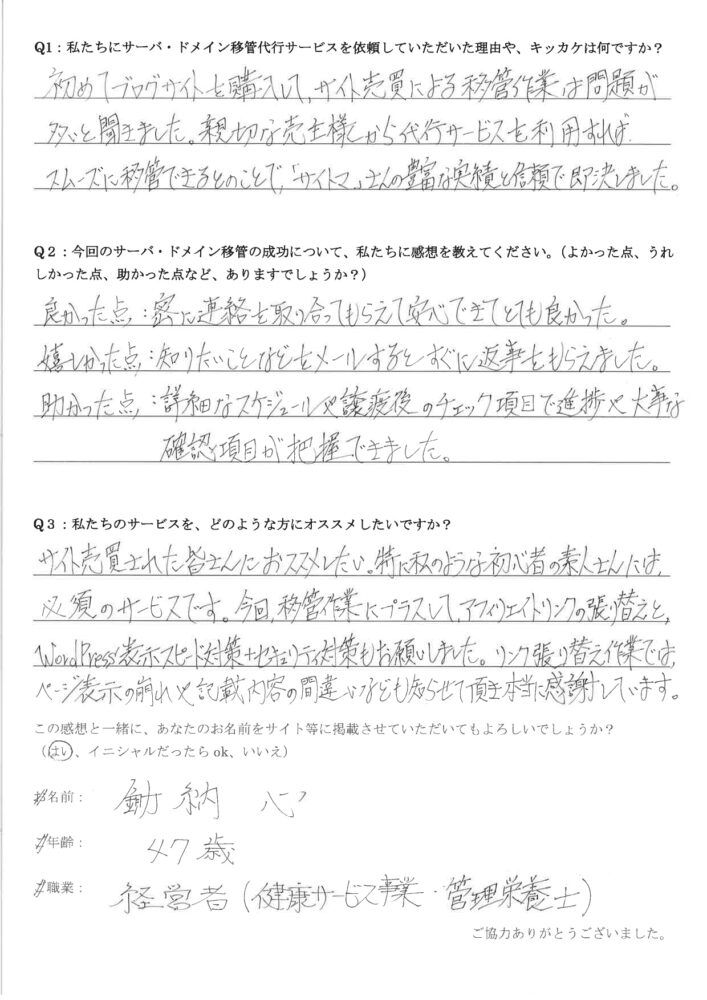 Q1：私たちにサーバ・ドメイン移管代行サービスを依頼していただいた理由や、キッカケは何ですか？
初めてブログサイトを購入して、サイト売買による移管作業は問題が
多いと聞きました。親切な売主様から代行サービスを利用すれば
スムーズに移管できるとのことで、「サイトマ」さんの豊富な実績と信頼で即決しました。
Q２：今回のサーバ・ドメイン移管の成功について、私たちに感想を教えてください。（よかった点、うれ
しかった点、助かった点など、ありますでしょうか？）
良かった点：密に連絡を取り合ってもらえて安心できてとても良かった。
嬉しかった点：知りたいことなどをメールするとすぐに返事をもらえました。
助かった点：詳細なスケジュールや譲渡後のチェック項目で進捗や大事な
確認項目が把握できました。
Q３：私たちのサービスを、どのような方にオススメしたいですか？
サイト売買された皆さんにおススメしたい。特に私のような初心者の素人さんには、
必須のサービスです。今回、移管作業にプラスして、アフィリエイトリンクの張り替えと、
WordPress表示スピード対策+セキュリティ対策もお願いしました。リンク張り替え作業では、
ページ表示の崩れや記載内容の間違いなども知らせて頂き本当に感謝しています。
この感想と一緒に、あなたのお名前をサイト等に掲載させていただいてもよろしいでしょうか？
（はい、イニシャルだったら ok、いいえ）
お名前： 納 心
ご年齢： 47歳
ご職業： 経営者（健康サービス事業・管理栄養士）
ご協力ありがとうございました。